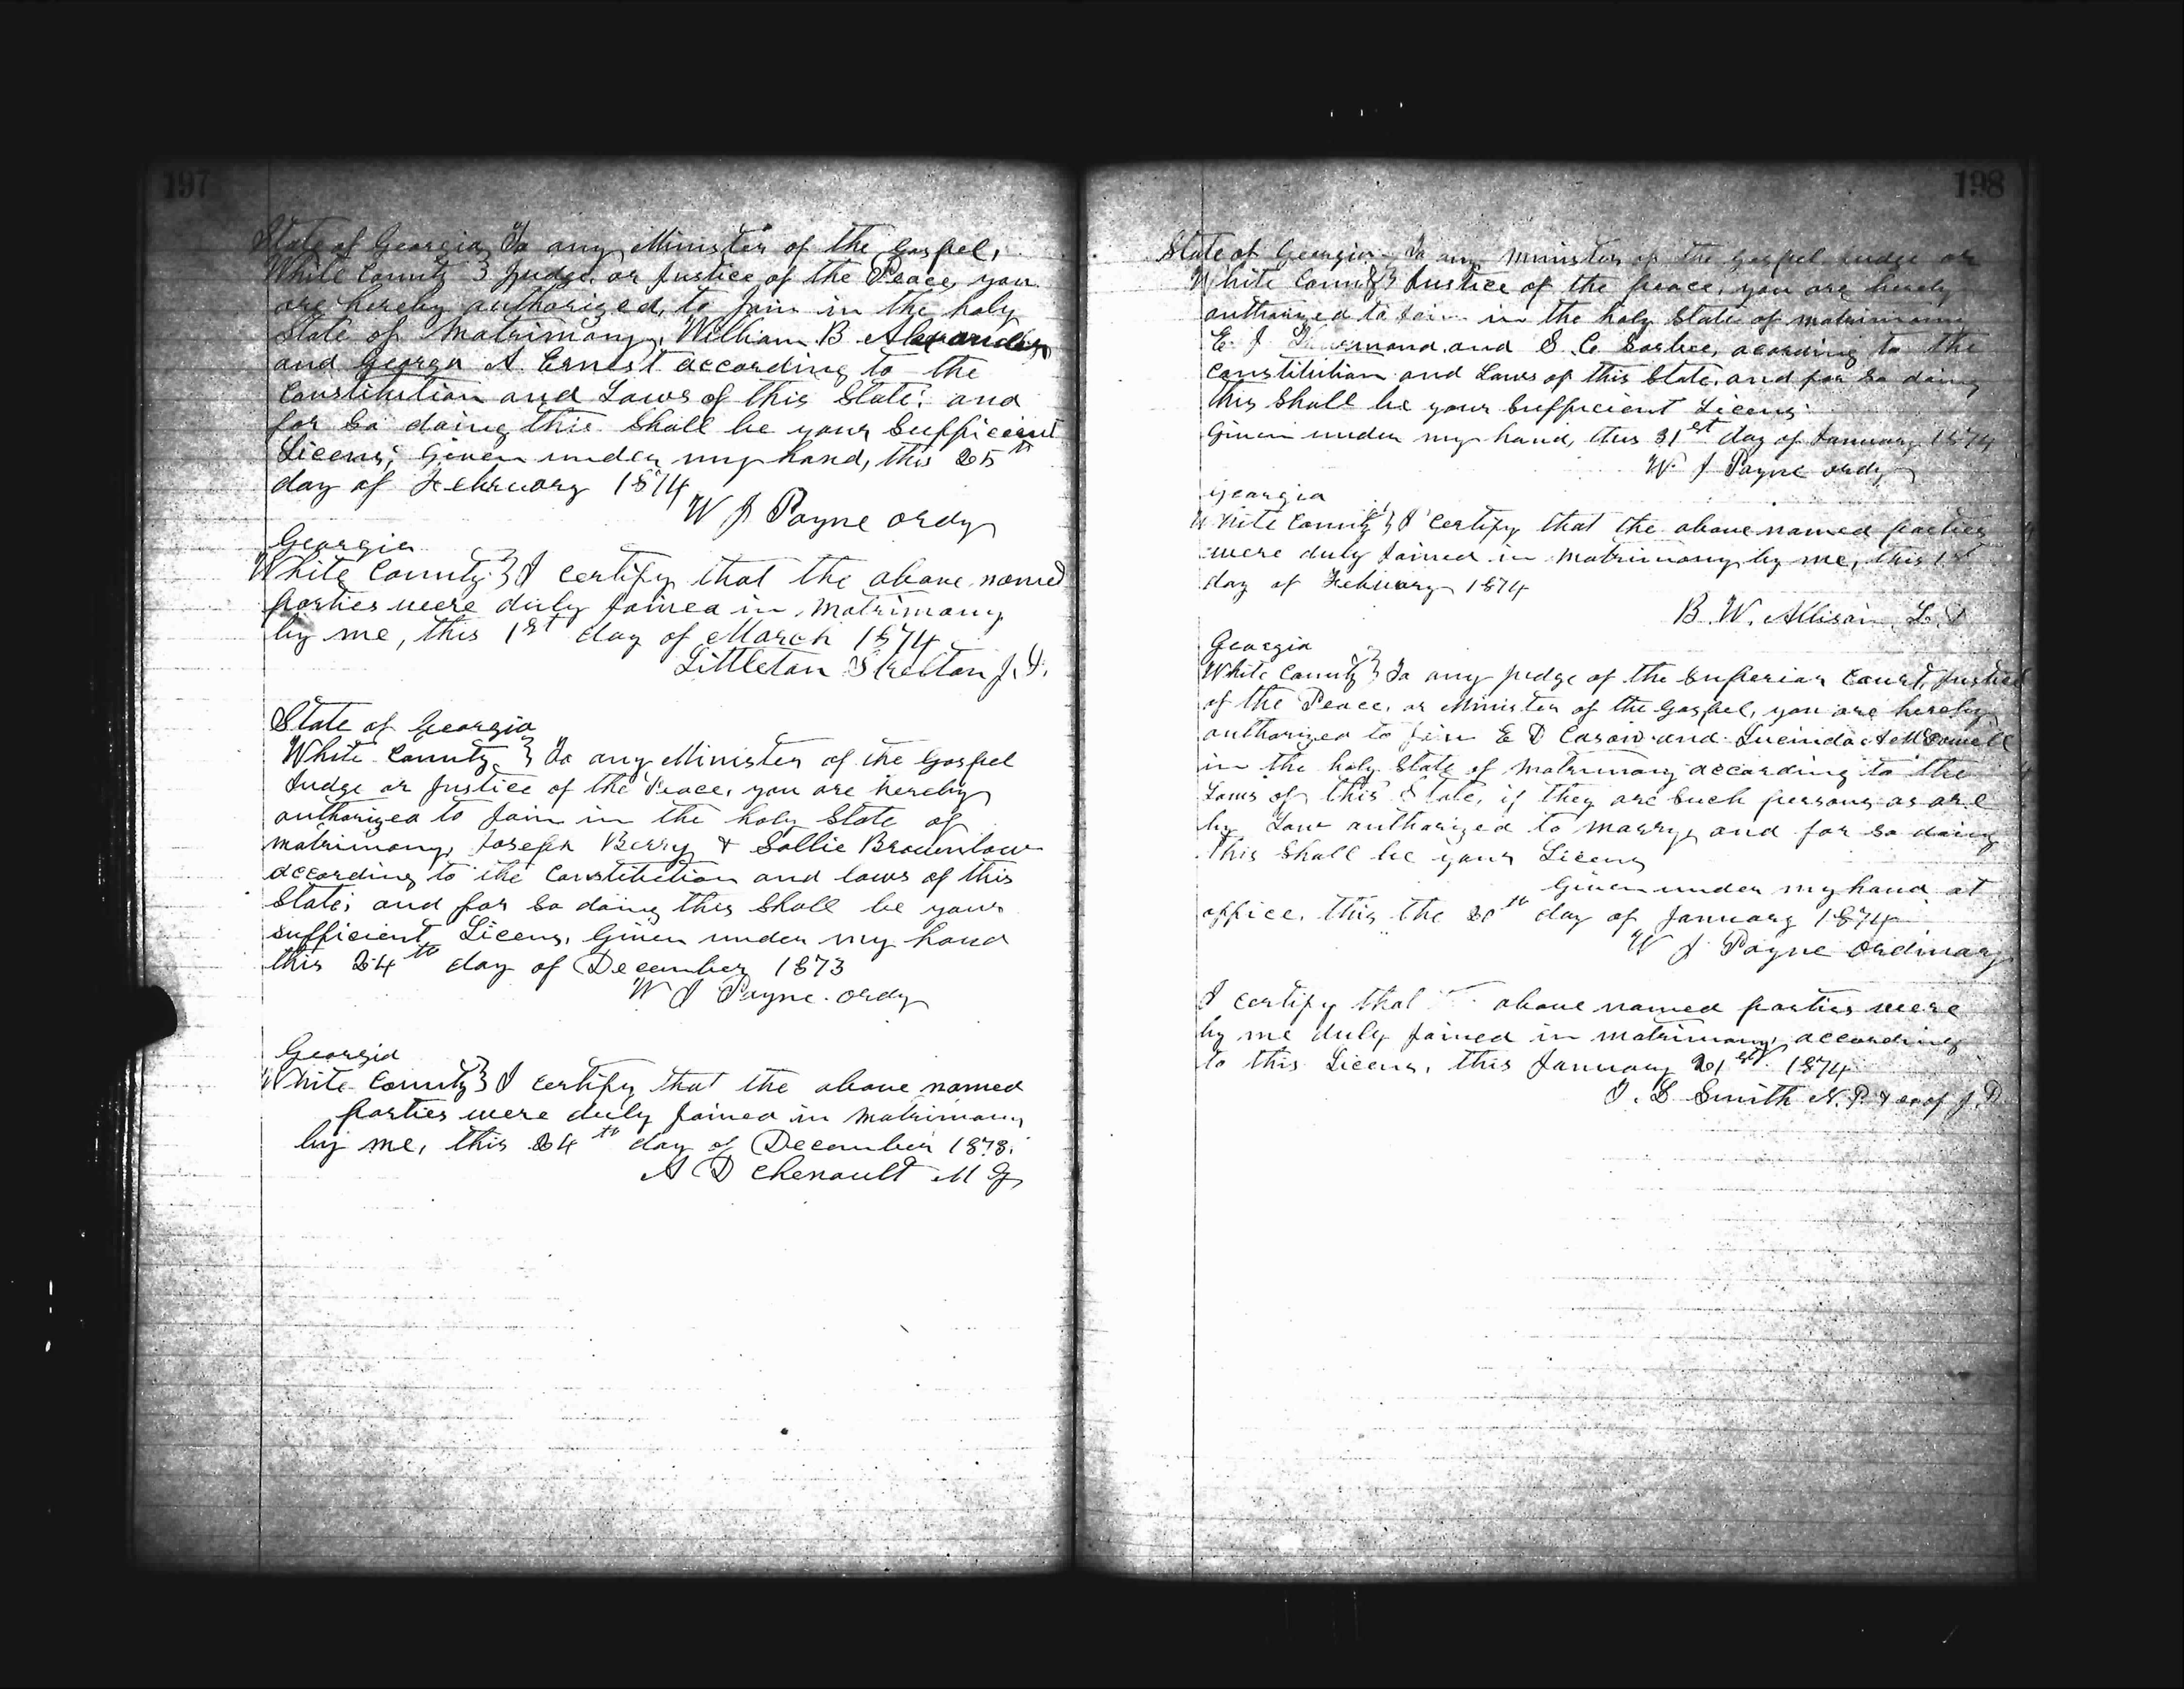 197
State of Georgia To any Minister of the Gospel,
White County } Judge, or Justice of the Peace, you
are hereby authorized, to Join in the holy
State of Matrimony, William B Alexander
and Georga A Ernest according to the
Constitution and Laws of this State; and
for So doing this Shall be your Sufficient
Licens; Given under my hand, this 25th
day of February 1874
W J Payne ordy
Georgia
White County } I certify that the above named
parties were duly Joined in Matrimony
by me, this 1st day of March 1874
Littleton Skelton J.P.
State of Georgia
White County } To any Minister of the Gospel
Judge or Justice of the Peace, you are hereby
authorized to Join in the holy State of
matrimony, Joseph Berry & Sallie Brownlow
according to the Constitution and laws of this
State; and for So doing this Shall be your
sufficient Licens, Given under my hand
this 24th day of December 1873
W J Payne ordy
Georgia
White County } I certify that the above named
parties were duly Joined in Matrimony
by me, this 24th day of December 1873.
A D Chenault M G
198
State of Georgia To any minister of the gospel Judge or
White County } Justice of the peace, you are hereby
authorized to Join in the holy State of matrimony
E. J and S. C. acording to the
Constitution and Laws of this State, and for So doing
this Shall be your Sufficient Licens
Given under my hand, this 31st day of January 1874
W. J Payne ordy
Georgia
White County } I certify that the above named parties
were duly Joined in Matrimony by me, this 1st
day of Febuary 1874
B. W. Allison
Georgia
White County } To any judge of the Superior Court, Justice
of the Peace, or Minister of the Gospel, you are hereby
authorized to Join E D and Lucinda A
in the holy State of Matrimony according to the
Laws of this State, if they are Such persons as are
by Law authorized to marry, and for So doing
this Shall be your Licens
Given under my hand at
office, this the 20th day of January 1874
W J Payne Ordinary
I certify that above named parties were
by me duly Joined in matrimony, according
to this Licens, this January 21st 1874
T. L Smith N. P. & ex of J. P.